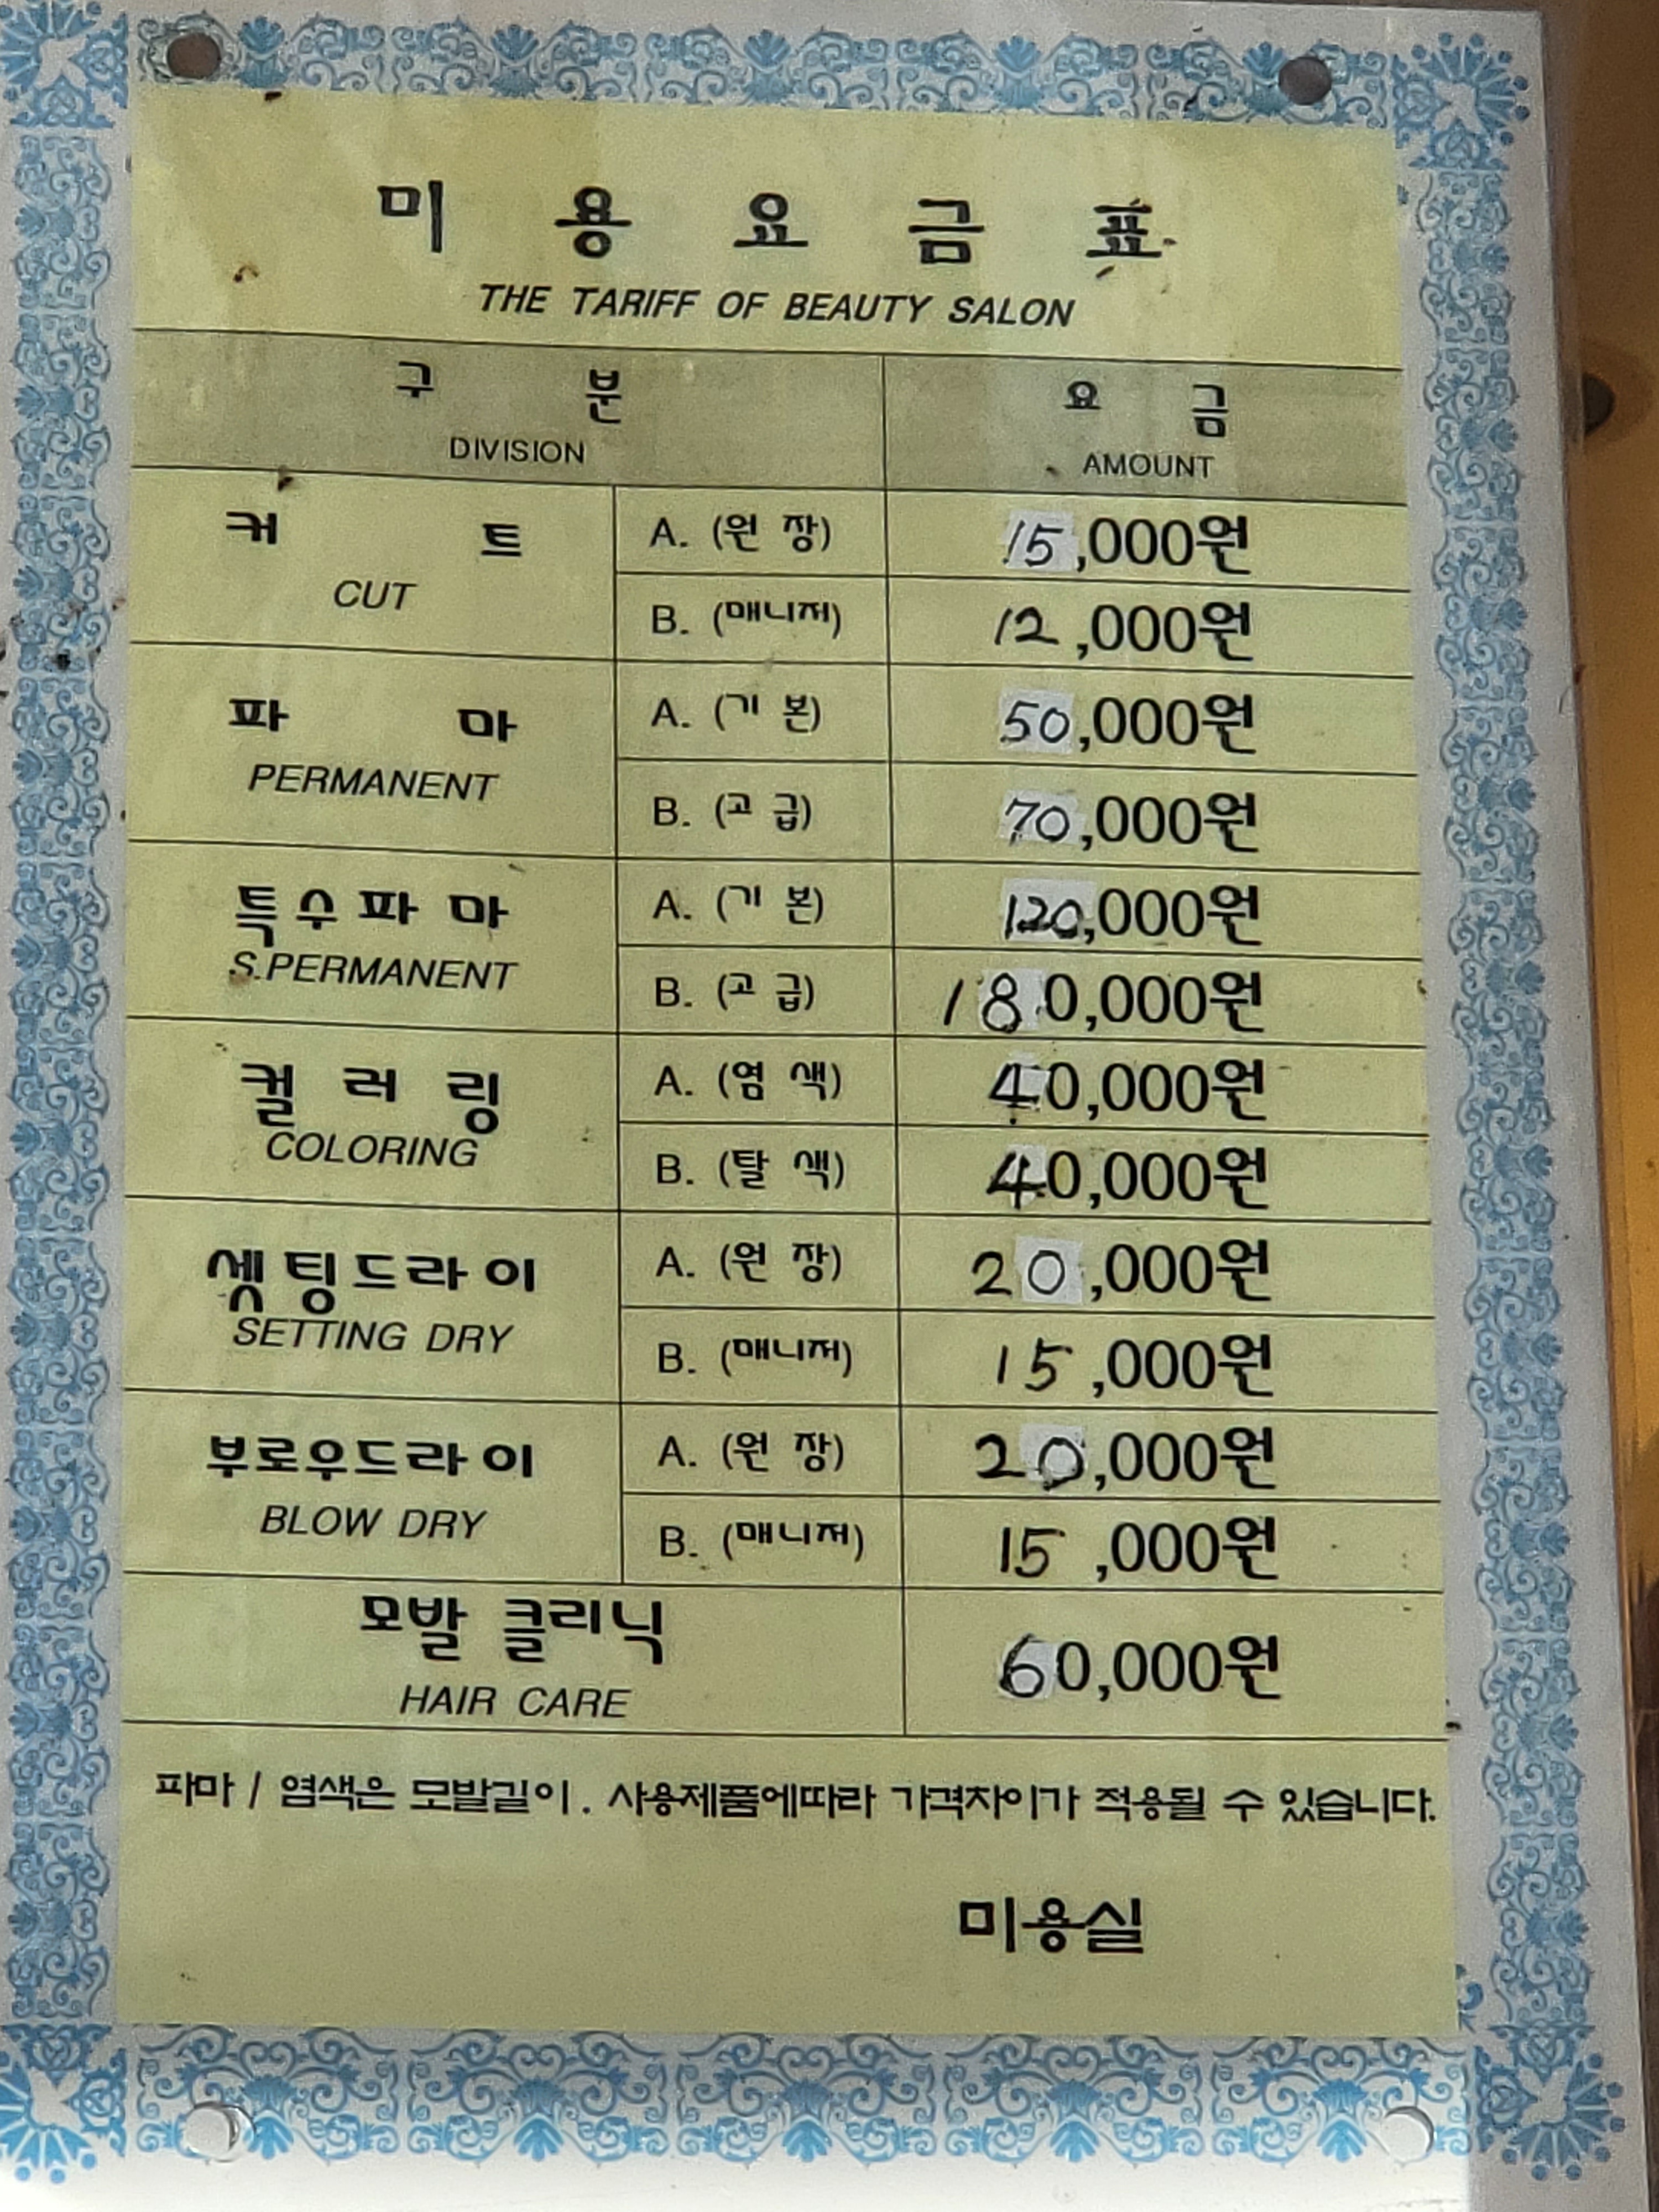 미용요금표
THE TARIFF OF BEAUTY SALON
구분 요금
DIVISION AMOUNT
커트 A. (원장) 15,000원
CUT B. (매니저) 12,000원
파마 A. (기본) 50,000원
PERMANENT B. (고급) 70,000원
특수파마 A. (기본) 120,000원
S.PERMANENT B. (고급) 180,000원
컬러링 A. (염색) 40,000원
COLORING B. (탈색) 40,000원
셋팅드라이 A. (원장) 20,000원
SETTING DRY B. (매니저) 15,000원
부로우드라이 A. (원장) 20,000원
BLOW DRY B. (매니저) 15,000원
모발 클리닉 60,000원
HAIR CARE
파마 / 염색은 모발길이. 사용제품에따라 가격차이가 적용될 수 있습니다.
미용실